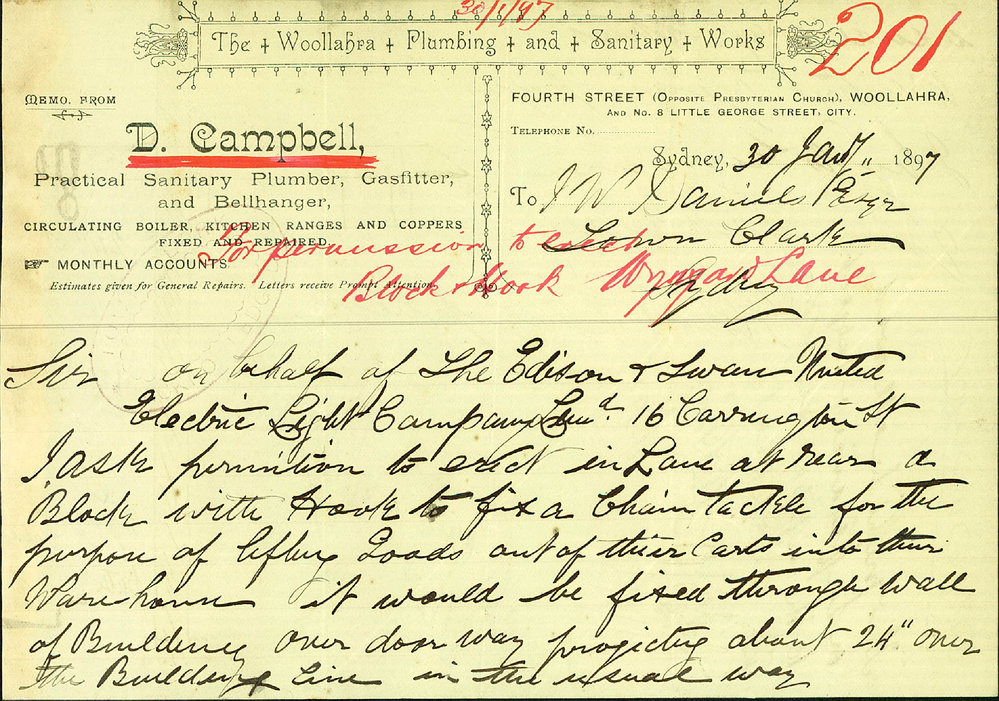 30/1/97
201
The Woollahra Plumbing and Sanitary Works
MEMO. FROM
D. Campbell,
Practical Sanitary Plumber, Gasfitter,
and Bellhanger,
CIRCULATING BOILER, KITCHEN RANGES AND COPPERS
FIXED AND REPAIRED.
MONTHLY ACCOUNTS.
Estimates given for General Repairs. Letters receive Prompt Attention.
FOURTH STREET (OPPOSITE PRESBYTERIAN CHURCH), WOOLLAHRA,
AND NO. 8 LITTLE GEORGE STREET, CITY.
TELEPHONE NO.
Sydney, 30 Jany 1897
To J W Daniels Esqr
Town Clark
Sydney
For permission to erect
Block & Hook Wynyard Lane
Sir on behalf of The Edison & Swan United
Electric Light Company Limd 16 Carrington St
I ask permition to erect in Lane at rear a
Block with Hook to fix a Chain tackle for the
purpose of lifting Goods out of thier Carts into their
Warehouse it would be fixed through wall
of Building over door way projecting about 24" over
the Building Line in the usual way